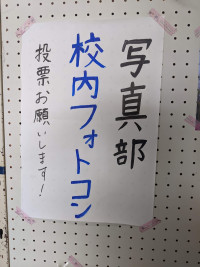 写真部
校内フォトコン
投票お願いします!